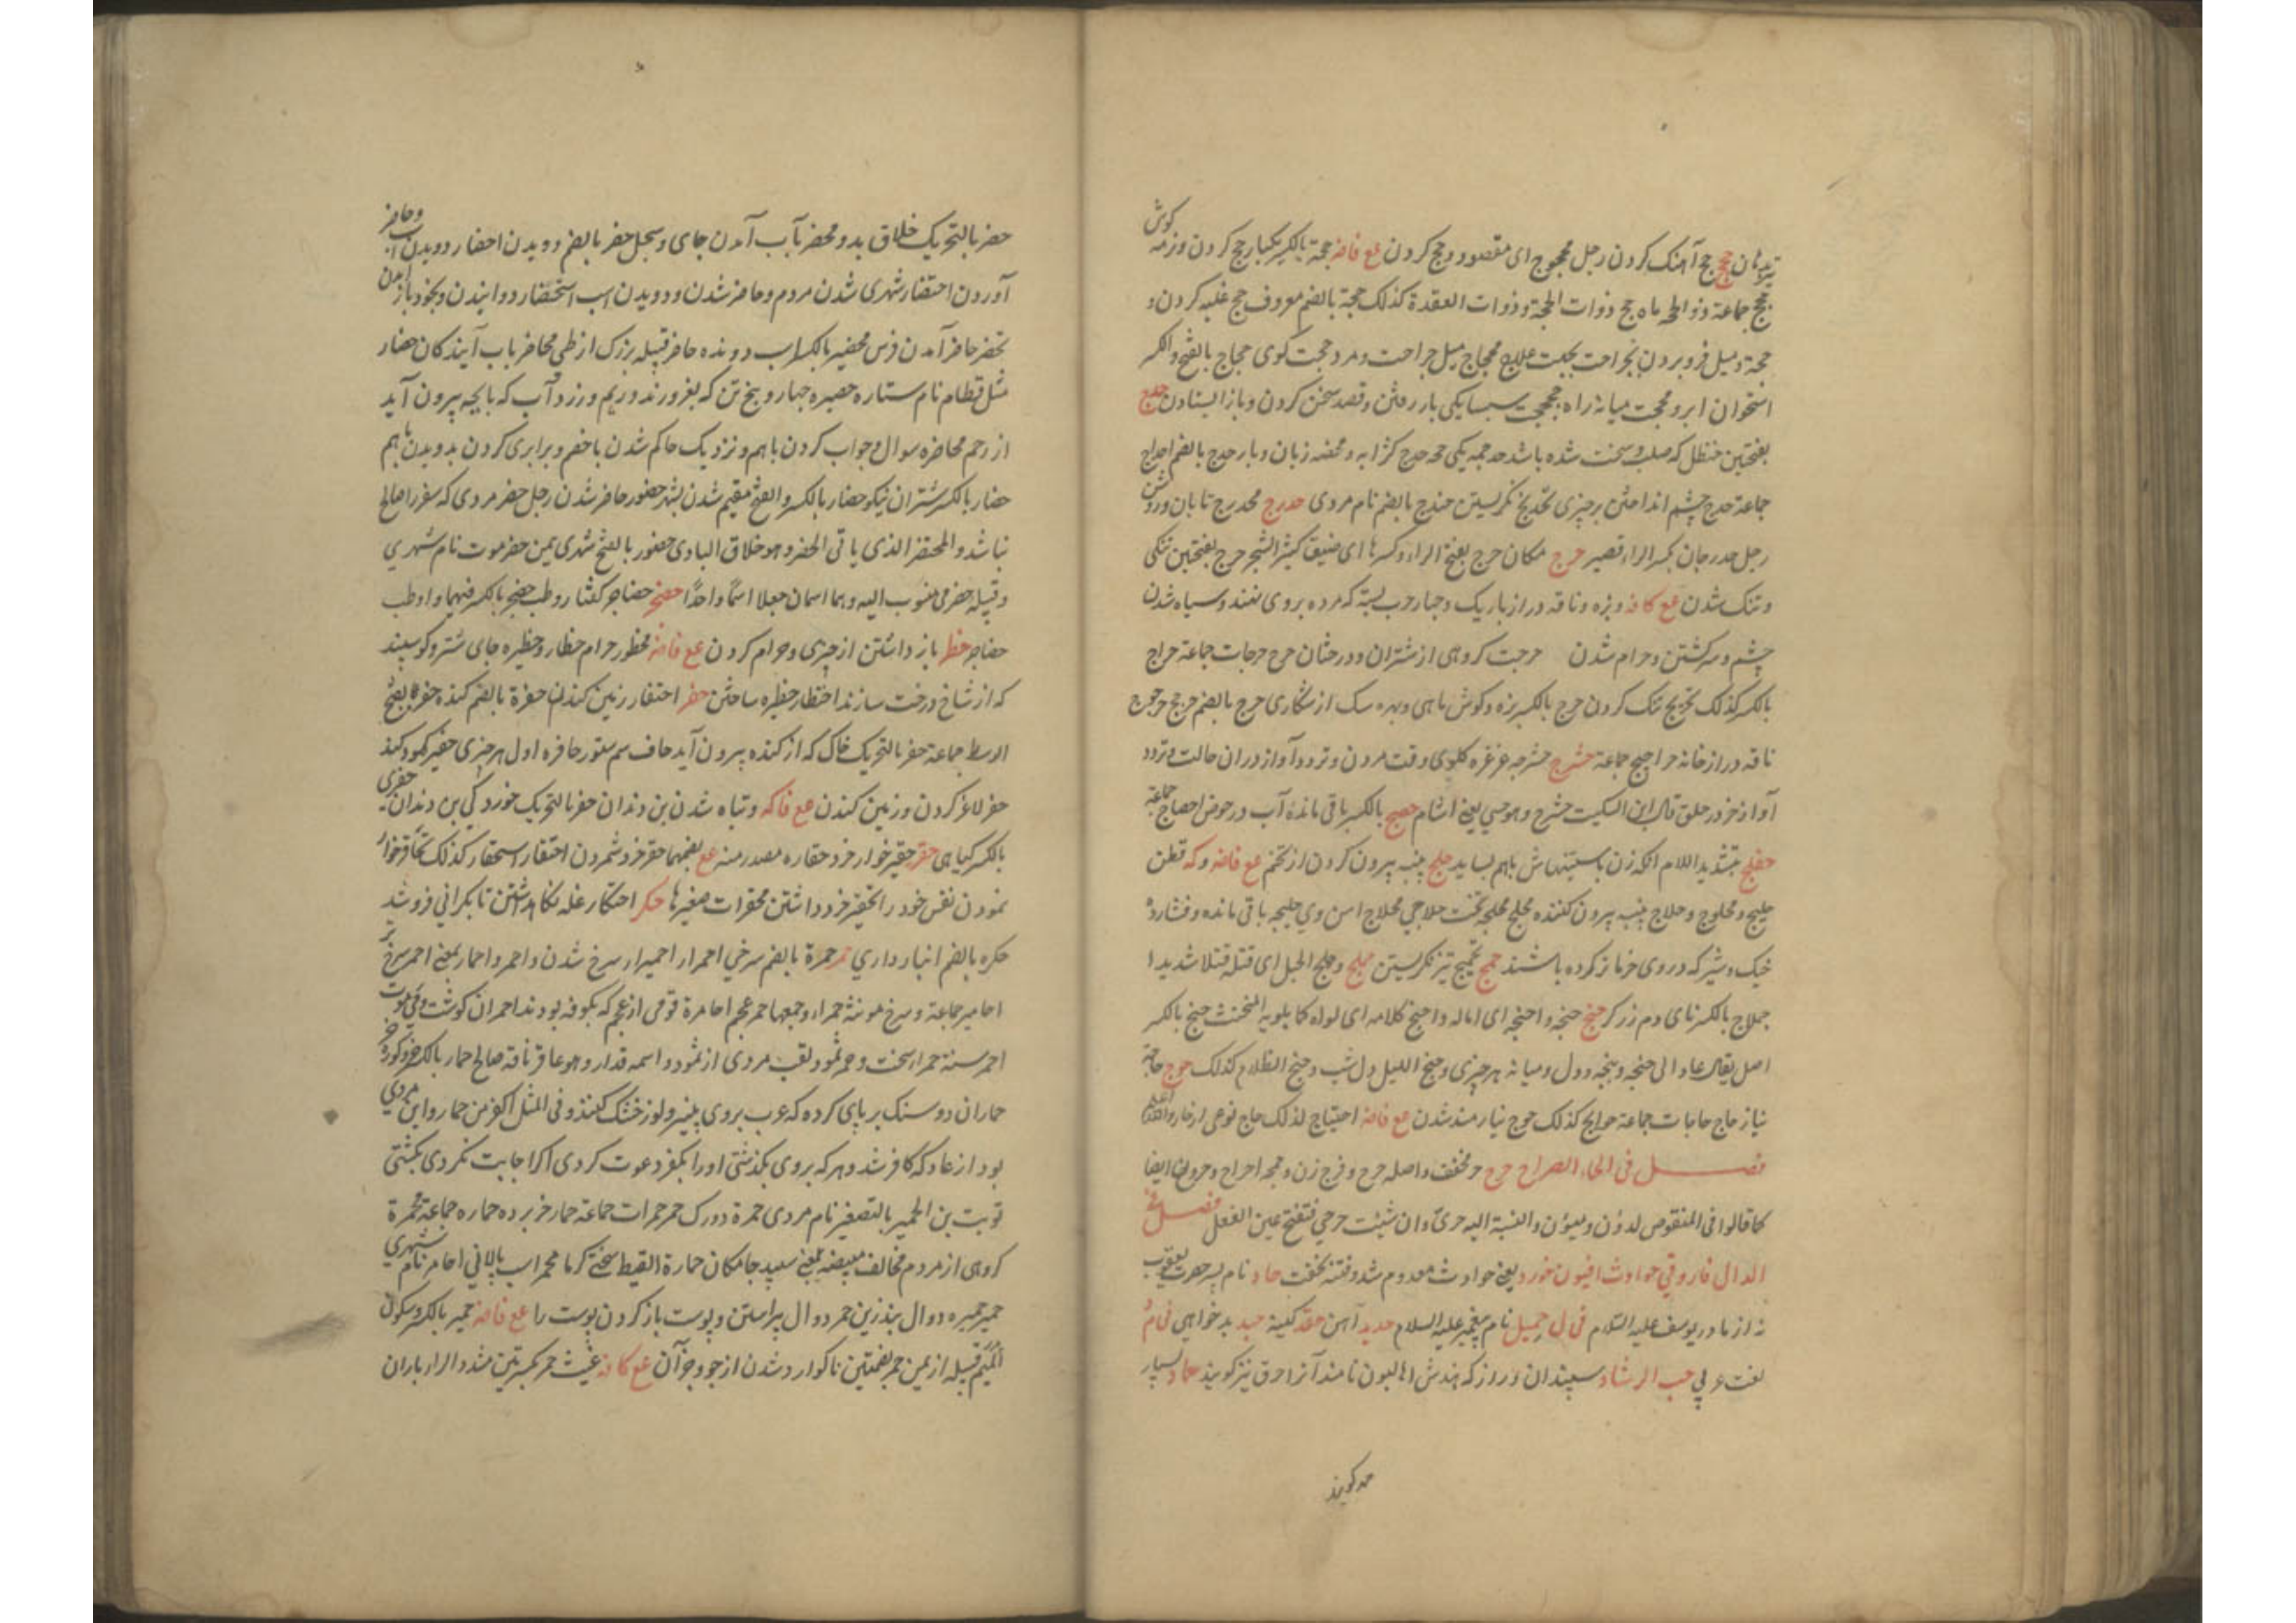 حج آهنک کردن رجل محجوج ای مقصود و حج کردن مع فاضه حجة بالکسر یکبار حج کردن و نرمه کوش
حجج جماعة ذو الحجه ماه حج ذوات الحجة و ذوات القعدة کذلک حجة بالضم معروف حج غلبه کردن و
حجة و میل فرو بردن بجراحت بجهت علاج محجاج میل جراحت و مرد حجت کوی حجاج بالفتح و الکسر
استخوان ابرو محجت میانهٔ راه حجحجت سپسایکی باز رفتن و قصد سخن کردن و باز ایستادن حدج
بفتحتین حنظل که صلب و سخت شده باشد حدجه یکی حدج کژابه و محفه زنان و بار حدج بالضم احداج
جماعة حدج چشم انداختن بر چیزی تحدیج نکریستن حندج بالضم نام مردی حدرج محدرج تابان و روشن
رجل حدرجان بکسر الراء قصیر حرج مکان حرج بفتح الراء و کسرها ای ضیق کثیر الشجر حرج بفتحتین تنکی
و تنک شدن مع کافه و بزه و ناقه دراز باریک و جنازه چوب بسته که مرده بروی نهند و سیاه شدن
چشم و سرکشتن و حرام شدن حرجت کروهی از شتران و درختان حرج حرجات جماعة حراج
بالکسر کذلک تحریج تنک کردن حرج بالکسر بزه و کوش ماهی و بهره سک از شکاری حرج بالضم حرجج حرجوج
ناقه دراز خانه حراجیج جماعة حشرج حشرجه غرغره کلوی وقت مردن و تردد آواز دران حالت و تردد
آواز خر در حلق قال ابن السکیت حشرج و هو حسی یعنی آشام حضج بالکسر باقی ماندهٔ آب در حوض احضاج جماعة
حفلج بتشدید اللام آنکه زن باستنهاش باهم بساید حلج پنبه بیرون کردن از تخم مع فاضه و که قطن
حلیج و محلوج و حلاج پنبه بیرون کننده محلج محلجه تخت حلاجی محلاج آهن وی حلیجه باقی مانده و فشارده
خیک و شیر که در وی خرما تر کرده باشند حمج تحمیج تیز نکریستن حملج و حملج الحبل ای فتله فتلا شدیدا
حملاج بالکسر نای دم زرکر حنج حنجه و احنجه ای اماله و احنج کلامه ای لواه کما یلویه المخنث حنج بالکسر
اصل یقال عاد الی حنجه و بنجه و دل و میانه هر چیزی و جنح اللیل دل شب و جنح الظلام کذلک حوج حاجة
نیاز حاج حاجات جماعة حوایج کذلک حوج نیازمند شدن مع فاضه احتیاج لذلک حاج نوعی از خار والله اعلم
فصل فی الحاء الصراح حرح حر مخفف و اصله حرح و فرج زن و جمعه احراح و حرون ایضا
کما قالوا فی المنقوص لدون و میون و النسبة الیه حری و ان شئت حرحی فتفتح عین الفعل فصل فی
الدال فاروقی حوادث افیون خورد یعنی حوادث معدوم شد و فتنه بخفت حاد نام پسر حضرت یعقوب
نه از مادر یوسف علیه السلام فی ل حمید نام پیغمبر علیه السلام حدید آهن حقد کینه حسد بدخواهی فی م
لغت عربی حب الرشاد سپندان دراز که هندش هالیون نامند آنرا حرق نیز کویند حماد بسیار
حمد کویند
حضر بالتحریک خلاق بدو و محضر بآب آمدن جای و سجل حضر بالضم دویدن احضار دویدن اسب و حاضر
آوردن احتضار شهری شدن مردم و حاضر شدن و دویدن اسب استحضار دوانیدن و بخود باز آمدن
تحضر حاضر آمدن فرس محضیر بالکسر اسب دونده حاضر قبیله بزرک از طی محاضر بآب آیند کان حضار
مثل قطام نام ستاره حضیره چهار و پنج تن که بغزو روند و ریم و زرد آب که با بچه بیرون آید
از رحم محاضره سوال و جواب کردن باهم و نزدیک حاکم شدن با خصم و برابری کردن بدویدن باهم
حضار بالکسر شتران نیکو حضار بالکسر و الفتح مقیم شدن بشهر حضور حاضر شدن رجل حضر مردی که سفر را صالح
نباشد و المحتضر الذی یاتی الحضر و هو خلاف البادی حضور بالفتح شهری بیمن حضرموت نام شهری
و قبیله حضرمی منسوب الیه و هما اسمان جعلا اسما واحدا حضجر حضاجر کفتار و طب حضجر بالکسر فیهما و اوطب
حضاجر حظر باز داشتن از چیزی و حرام کردن مع فاضه محظور حرام حظار و حظیره جای شتر و کوسپند
که از شاخ درخت سازند احتظار حظیره ساختن حفر احتفار زمین کندن حفرة بالضم کنده حفر بفتح
الوسط جماعة حفر بالتحریک خاک که از کنده بیرون آید حاف سم ستور حافره اول هر چیزی حفیر کود کنند
حفر لاغر کردن و زمین کندن مع فاکه و تباه شدن بن دندان حفر بالتحریک خوردکی بن دندان حفری
بالکسر کیاهی حقر حقیر خوار خرد حقاره مصدر منه مع بضمهما حقر خرد شمردن احتقار استحقار کذلک تحاقر خوار
نمودن نفس خود را تحقیر خرد داشتن محقرات صغیرها حکر احتکار غله نکاهداشتن تا بکرانی فروشد
حکره بالضم انبارداری حمر حمرة بالضم سرخی احمرار احمیرار سرخ شدن و احمر و احمار بمعنی احمر سرخ تر
احامیر جماعة و سرخ مونثه حمراء و جمعها حمر عجم احامرة قومی از عجم که بکوفه بودند احمران کوشت و می موت
احمر سنة حمراء سخت و حمر ثمود لقب مردی از ثمود و اسمه قدار و هو عاقر ناقة صالح حمار بالکسر خر و کورخر
حماران دو سنک بر پای کرده که عرب بروی پنیر و لوز خشک کنند و فی المثل اکفر من حمار و این مردی
بود از عاد که کافر شد و هر که بروی بکذشتی اورا بکفر دعوت کردی اکر اجابت نکردی بکشتی
توبت بن الحمیر بالتصغیر نام مردی حمرة دورک حمر حمرات جماعة حمار خر بر ده حماره جماعة محمرة
کروهی از مردم مخالف مبیضه یعنی سپید جامکان حمارة القیظ سختی کرما محمر اسب پالانی احامر نام شهری
حمیر حمیره دوال بند زین حمر دوال پیراستن و پوست باز کردن پوست را مع فاضه حمیر بالکسر و سکون
المیم قبیله از یمن حمر بفتحتین ناکوارد شدن از جو و جز آن مع کافه غیث حمر بکسرتین مشدد الراء باران